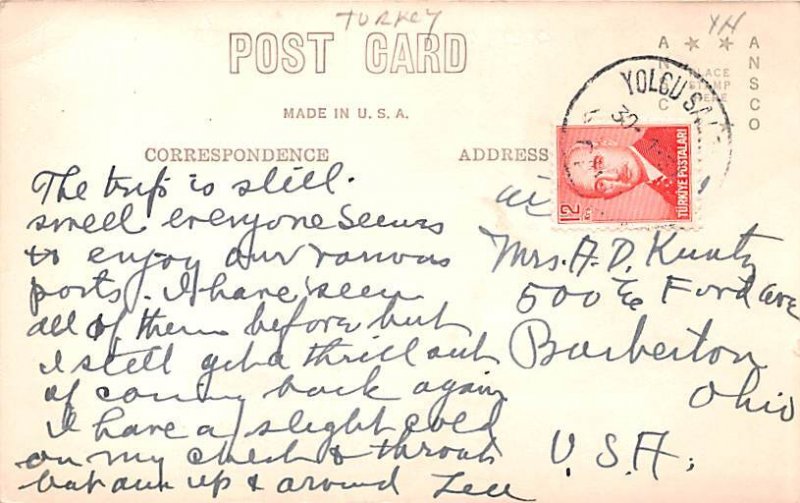 TURKEY
YH
POST CARD
ANSCO
ANSCO
PLACE
STAMP
HERE
MADE IN U.S.A.
YOLCU SA
30
CORRESPONDENCE
ADDRESS
12
TÜRKİYE POSTALARI
The trip is still
swell everyone seems
to enjoy our various
ports. I have seen
all of them before but
I still get a thrill out
of coming back again
I have a slight cold
on my chest & throat
but am up & around Lee
Mrs. A. D. Kuntz
500 Ford ave
Barberton
Ohio
U.S.A.